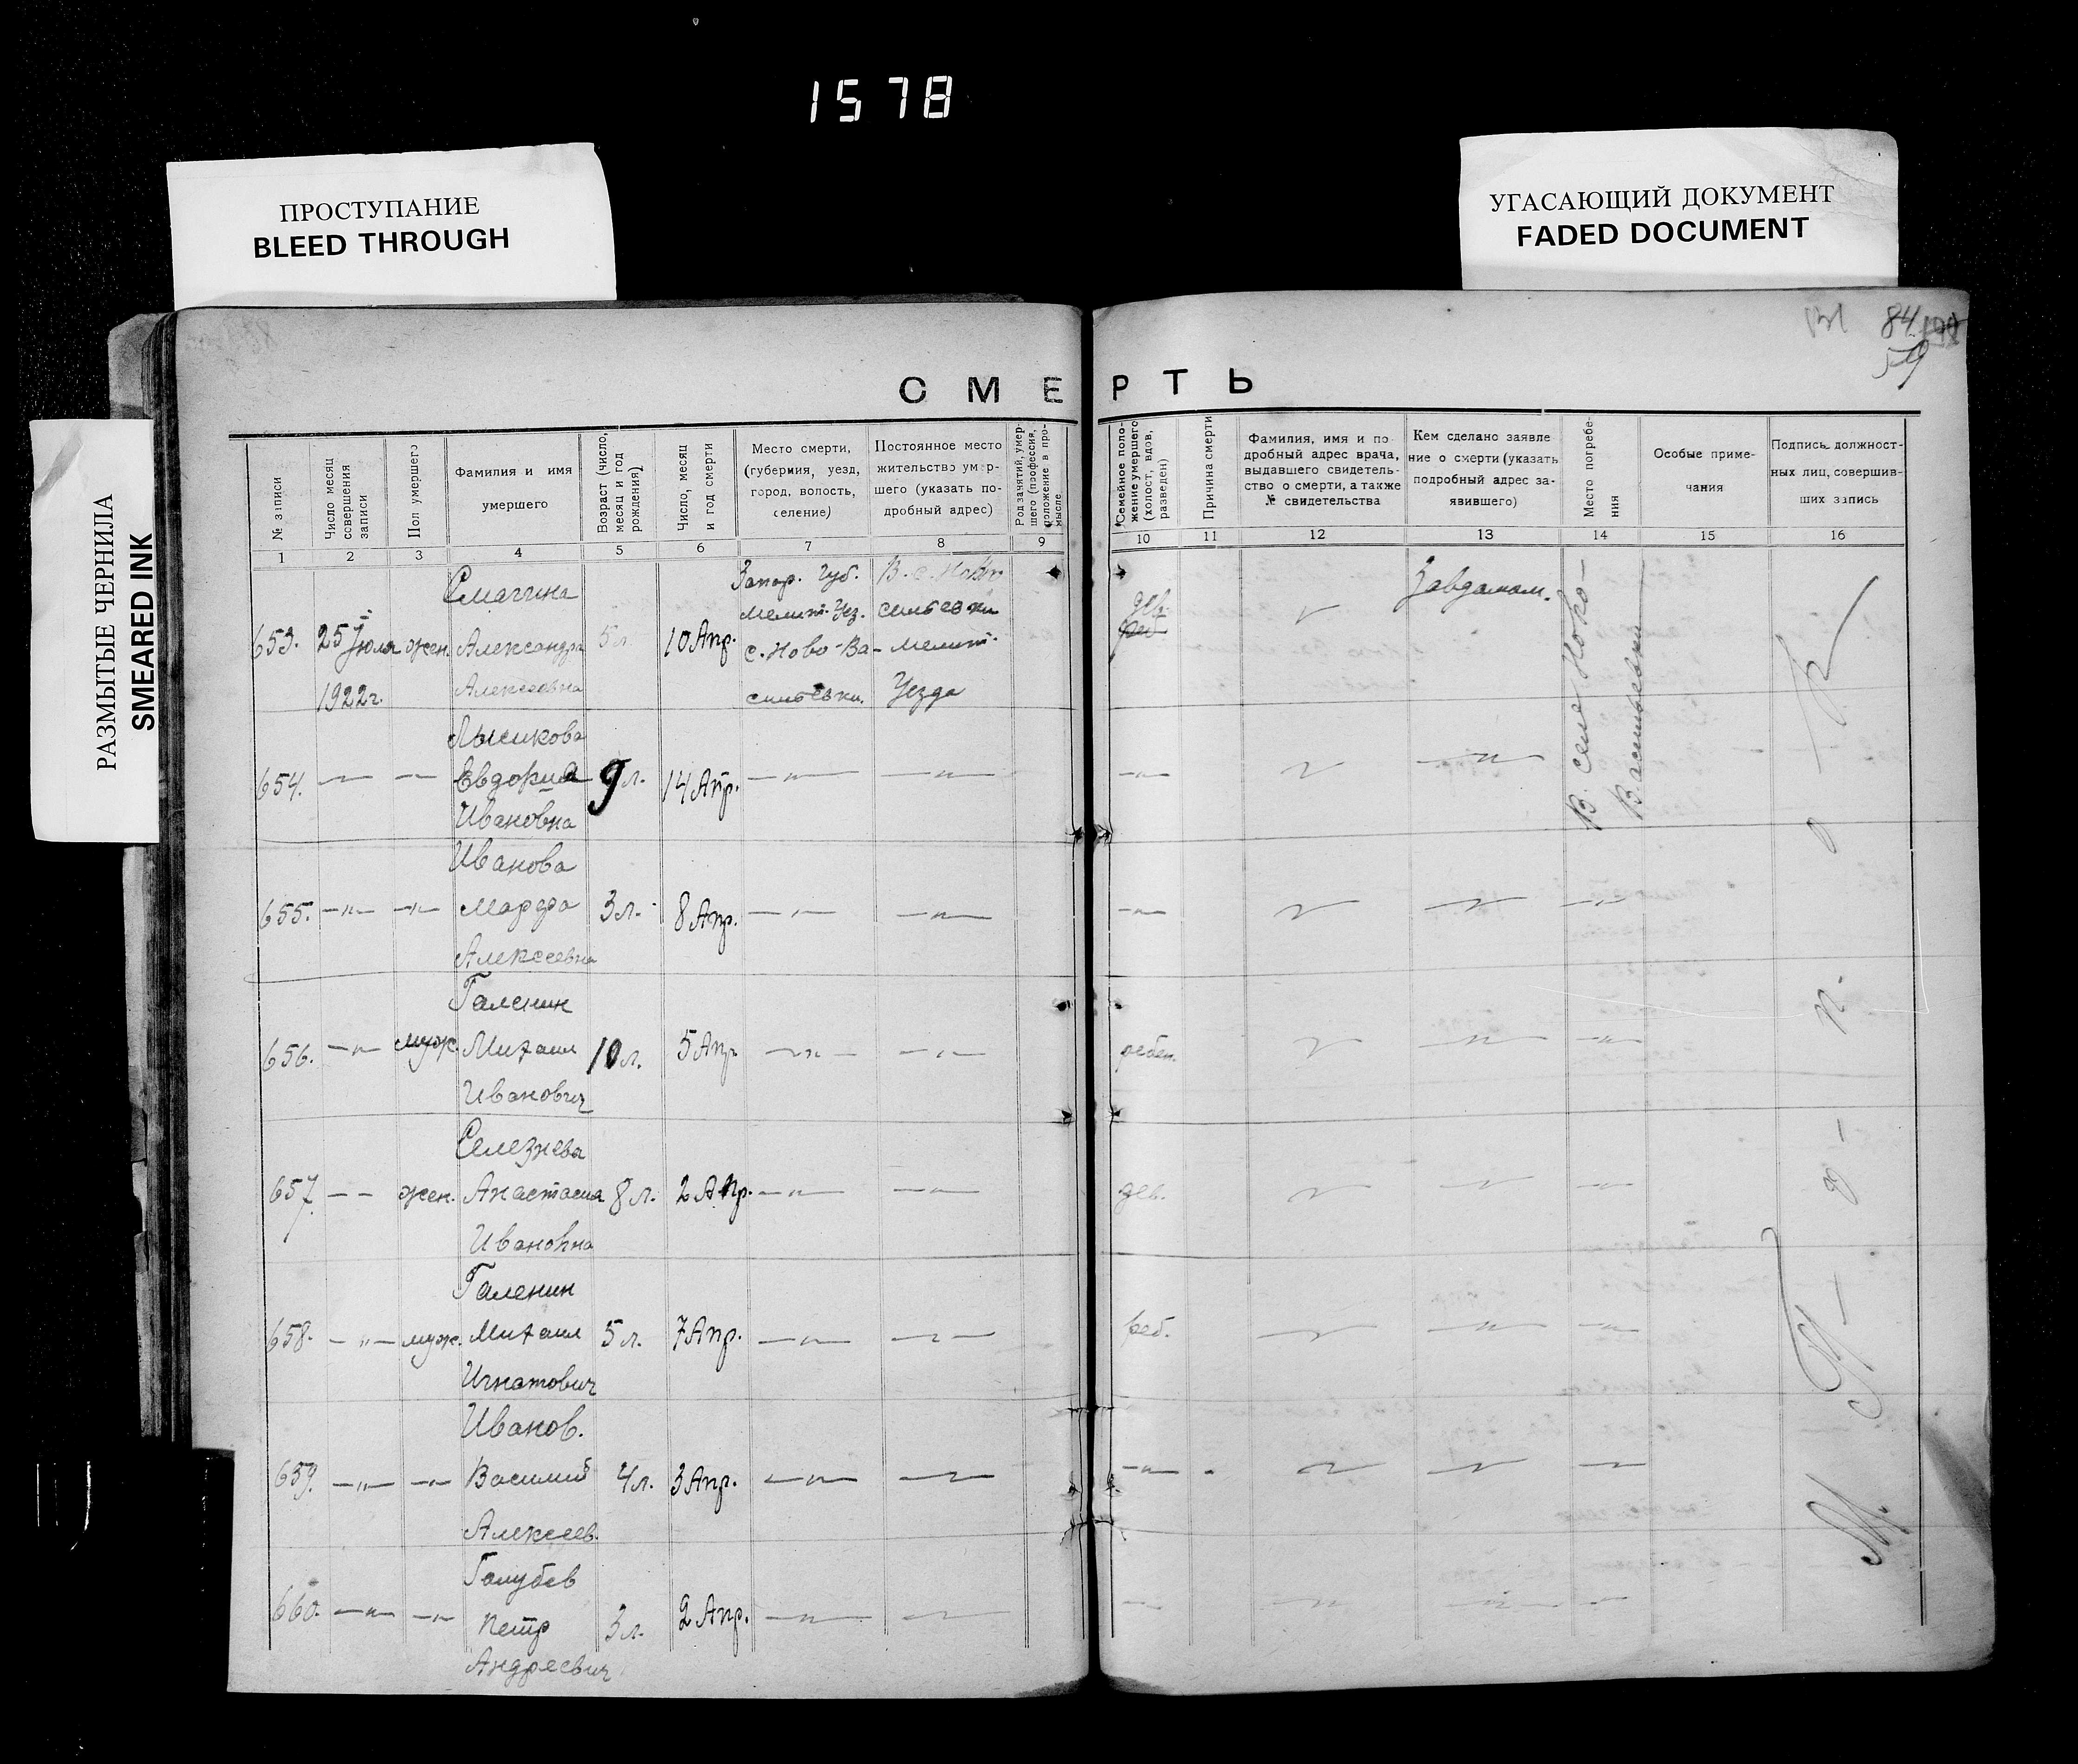 1578
ПРОСТУПАНИЕ
BLEED THROUGH
УГАСАЮЩИЙ ДОКУМЕНТ
FADED DOCUMENT
РАЗМЫТЫЕ ЧЕРНИЛА
SMEARED INK
84
59
СМЕРТЬ
№ записи
Число месяц совершения записи
Пол умершего
Фамилия и имя
умершего
Возраст (число, месяц и год рождения)
Число, месяц и год смерти
Место смерти,
(губерния, уезд,
город, волость,
селение)
Постоянное место
жительство умер-
шего (указать по-
дробный адрес)
Род занятий, умер-
шего (профессия,
положение в про-
мысле
Семейное поло-
жение умершего
(холост, вдов,
разведен)
Причина смерти
Фамилия, имя и по
дробный адрес врача,
выдавшего свидетель-
ство о смерти, а также
№ свидетельства
Кем сделано заявле
ние о смерти (указать
подробный адрес за-
явившего)
Место погребе-
ния
Особые приме-
чания
Подпись должност-
ных лиц, совершив-
ших запись
1 2 3 4 5 6 7 8 9 10 11 12 13 14 15 16
653. 25 Июля 1922г. жен. Смагина
Александра
Алексеевна
5 л. 10 Апр.
Запор. Губ.
Мелит. Уез.
с. Ново-Ва-
сильевки.
В. с. Ново
сильевки
Мелит.
Уезда
дев.
Завдамом.
В. селе Ново-
Васильевки
654. — — Лысикова
Евдокия
Ивановна
9 л. 14 Апр. —"— —"— —"—
655. —"— —"— Иванова
Марфа
Алексеевна
3 л. 8 Апр. —"— —"— —"—
656. —"— муж. Галенин
Михаил
Иванович
10 л. 5 Апр —"— —"— ребен.
657 — — жен. Селезнева
Анастасия
Ивановна
8 л. 2 Апр. —"— —"— дев.
658. —"— муж. Галенин
Михаил
Игнатович
5 л. 7 Апр. —"— —"— реб.
659. —"— —"— Иванов.
Василий
Алексеев.
4 л. 3 Апр. —"— —"— —"—
660. —"— —"— Голубев
Петр
Андреевич
3 л. 2 Апр. —"— —"— —"—